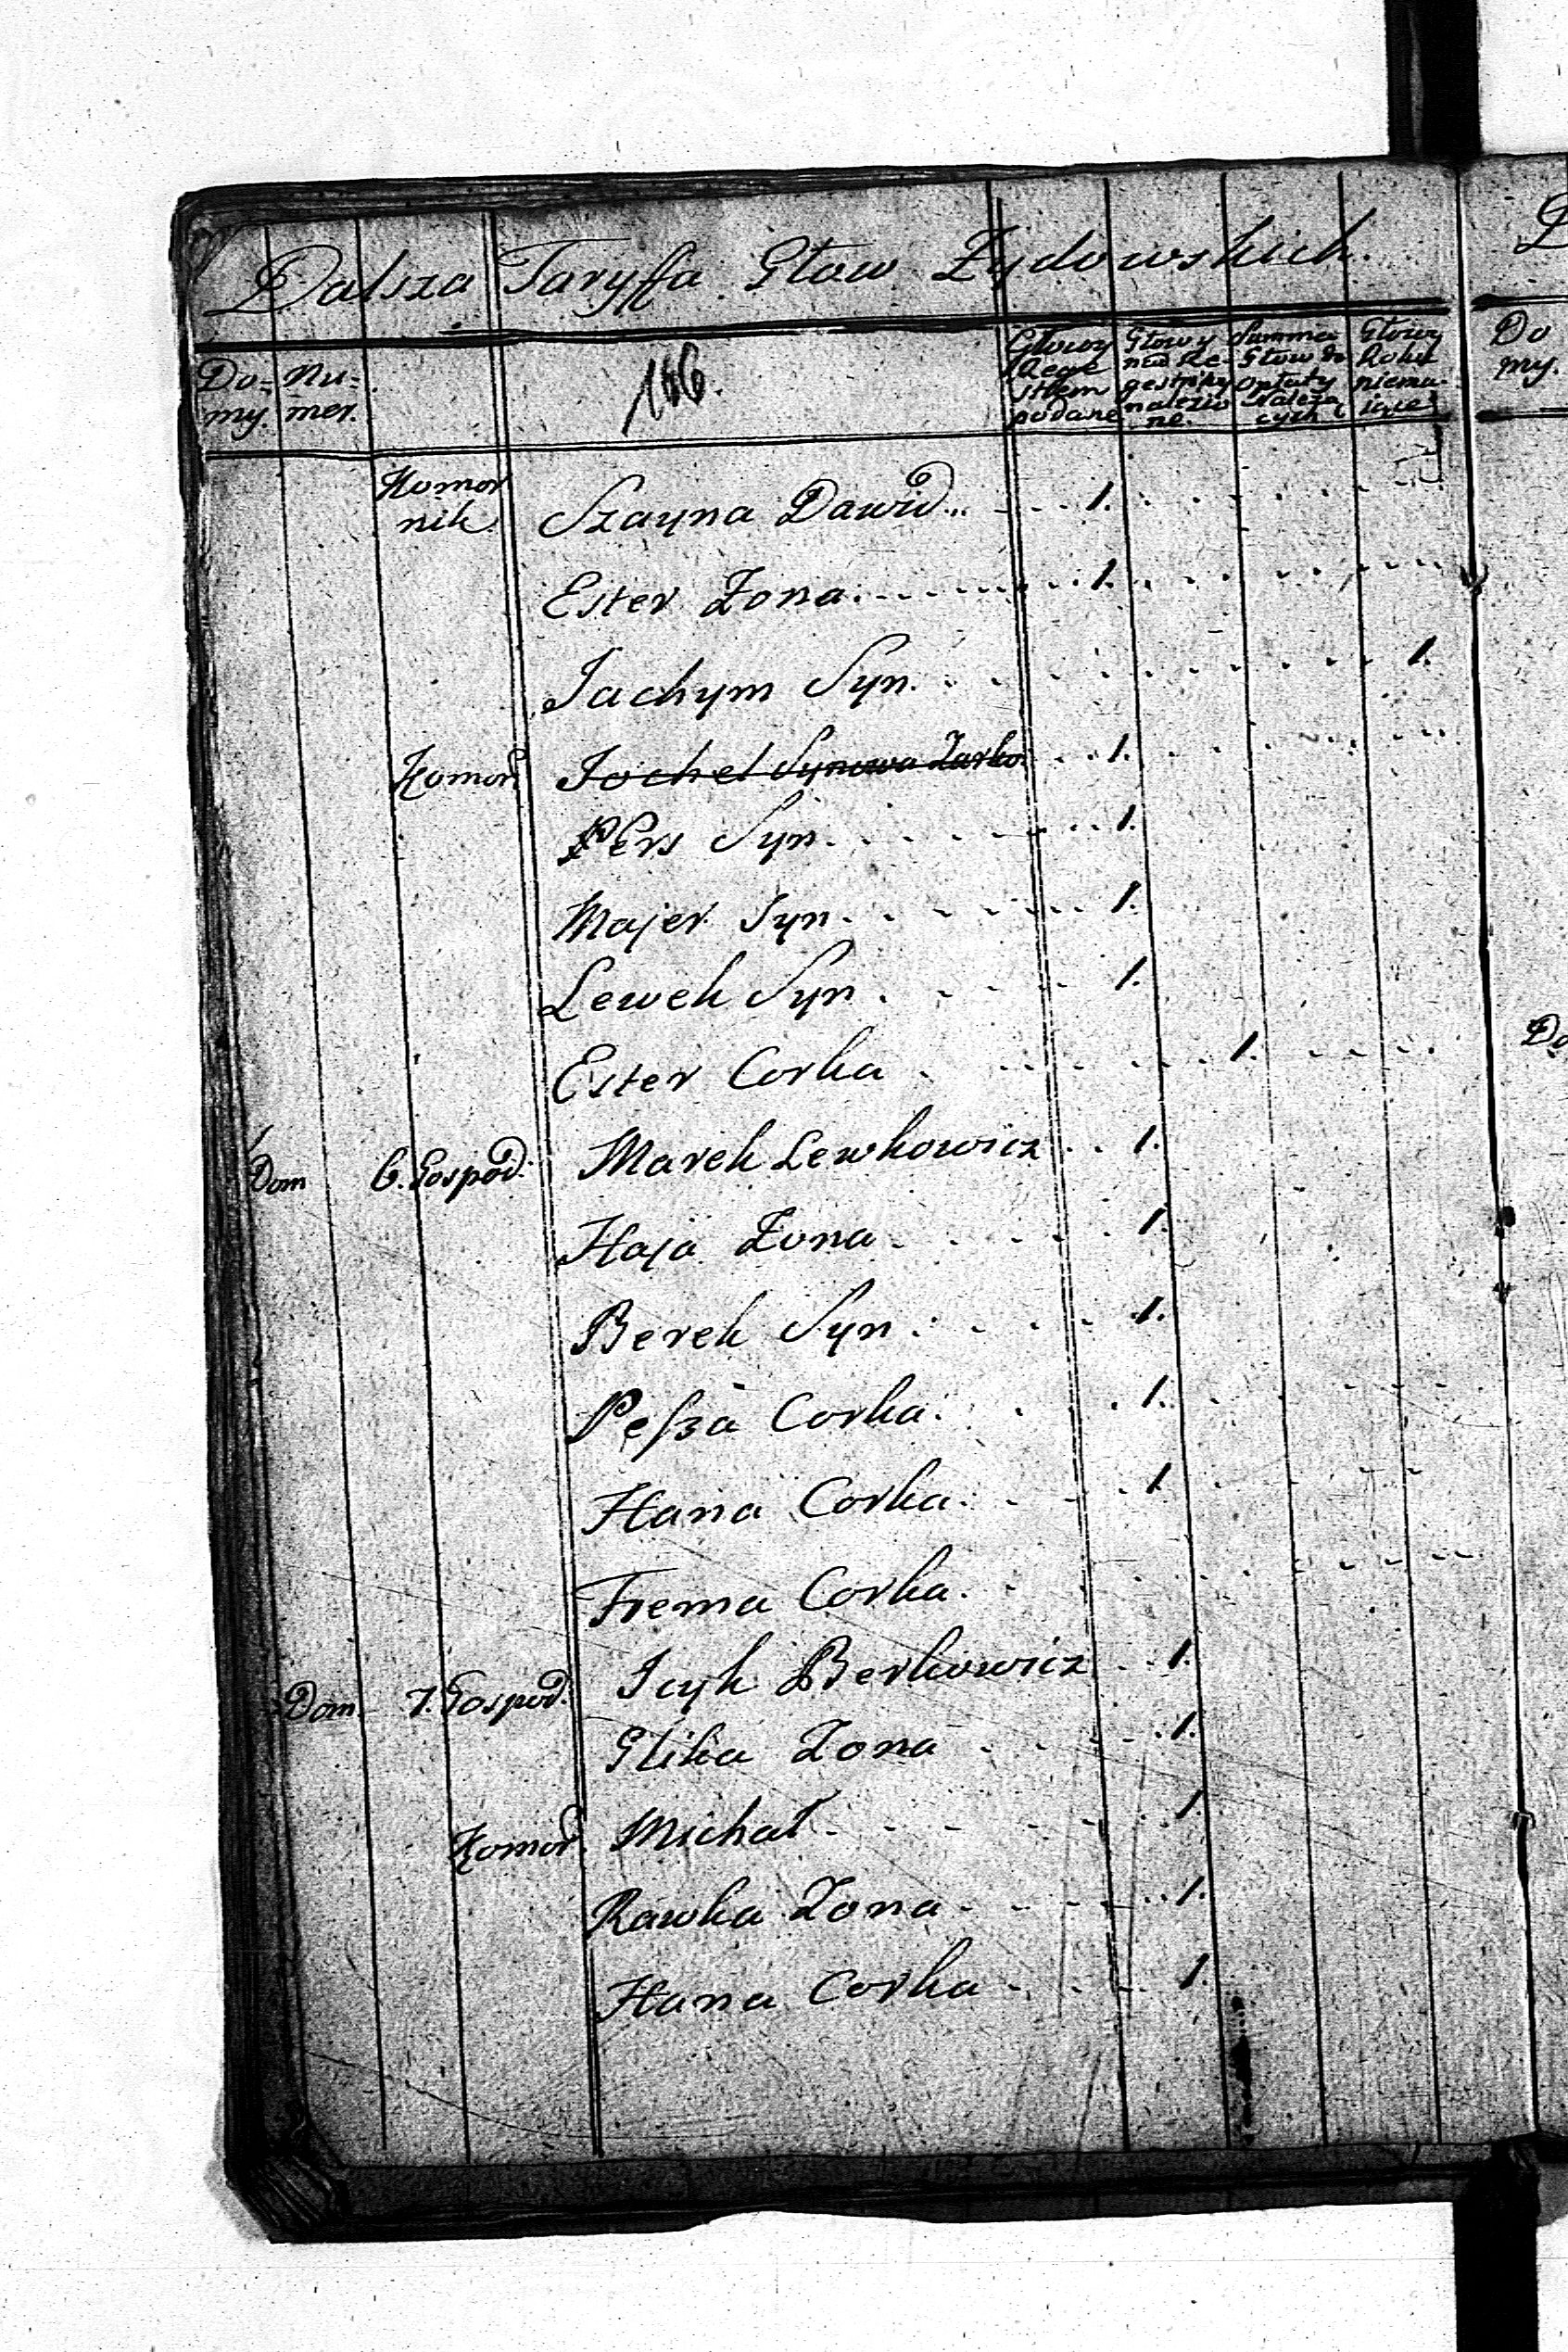 Dalsza Taryfa Głow Żydowskich.
Do= my. Nu= mer. 146. Głowy Rege strem podane Głowy nad Re- gestr niy nalezio ne. Summa Głow do opłaty Należą cych Głowy Roku niema iące
Komor nik. Szayna Dawid... 1.
Ester Żona. 1.
Jachym Syn. 1.
Komor. Jochel Synowa Zarko 1.
Pers Syn. 1.
Majer Syn. 1.
Lewek Syn. 1.
Ester Corka. 1.
Dom 6. Gospod. Marek Lewkowicz. 1.
Haja Żona. 1.
Berek Syn. 1.
Pesza Corka. 1.
Hana Corka. 1
Frema Corka.
Dom 7. Gospod. Icyk Berkowicz. 1.
Glika Zona. 1.
Komor. Michał. 1.
Rawka Zona. 1.
Hana Corka. 1.
Do
my.